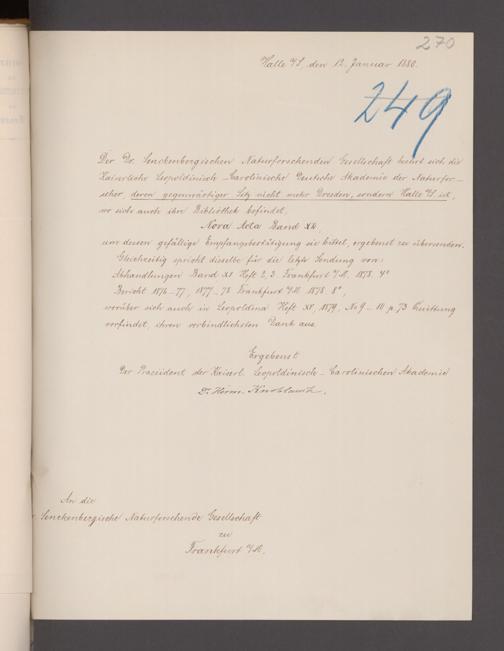 270
Halle a/S, den 12. Januar 1880.
249
Der Dr. Senckenbergischen Naturforschenden Gesellschaft beehrt sich die
Kaiserliche Leopoldinisch-Carolinische Deutsche Akademie der Naturfor-
scher, deren gegenwärtiger Sitz nicht mehr Dresden, sondern Halle a/S. ist,
wo sich auch ihre Bibliothek befindet,
Nova Acta Band
um deren gefällige Empfangsbestätigung sie bittet, ergebenst zu übersenden.
Gleichzeitig spricht dieselbe für die letzte Sendung von:
Abhandlungen Band XI Heft 2, 3. Frankfurt a/M. 1878. 4°
Bericht 1876-77, 1877-78 Frankfurt a/M. 1878. 8°,
worüber sich auch in Leopoldina Heft XV, 1879, No 9-10 p. 73 Quittung
vorfindet, ihren verbindlichsten Dank aus.
Ergebenst
Der Praesident der Kaiserl. Leopoldinisch-Carolinischen Akademie
Dr. Herm. Knoblauch.
An die
Senckenbergische Naturforschende Gesellschaft
zu
Frankfurt a/M.